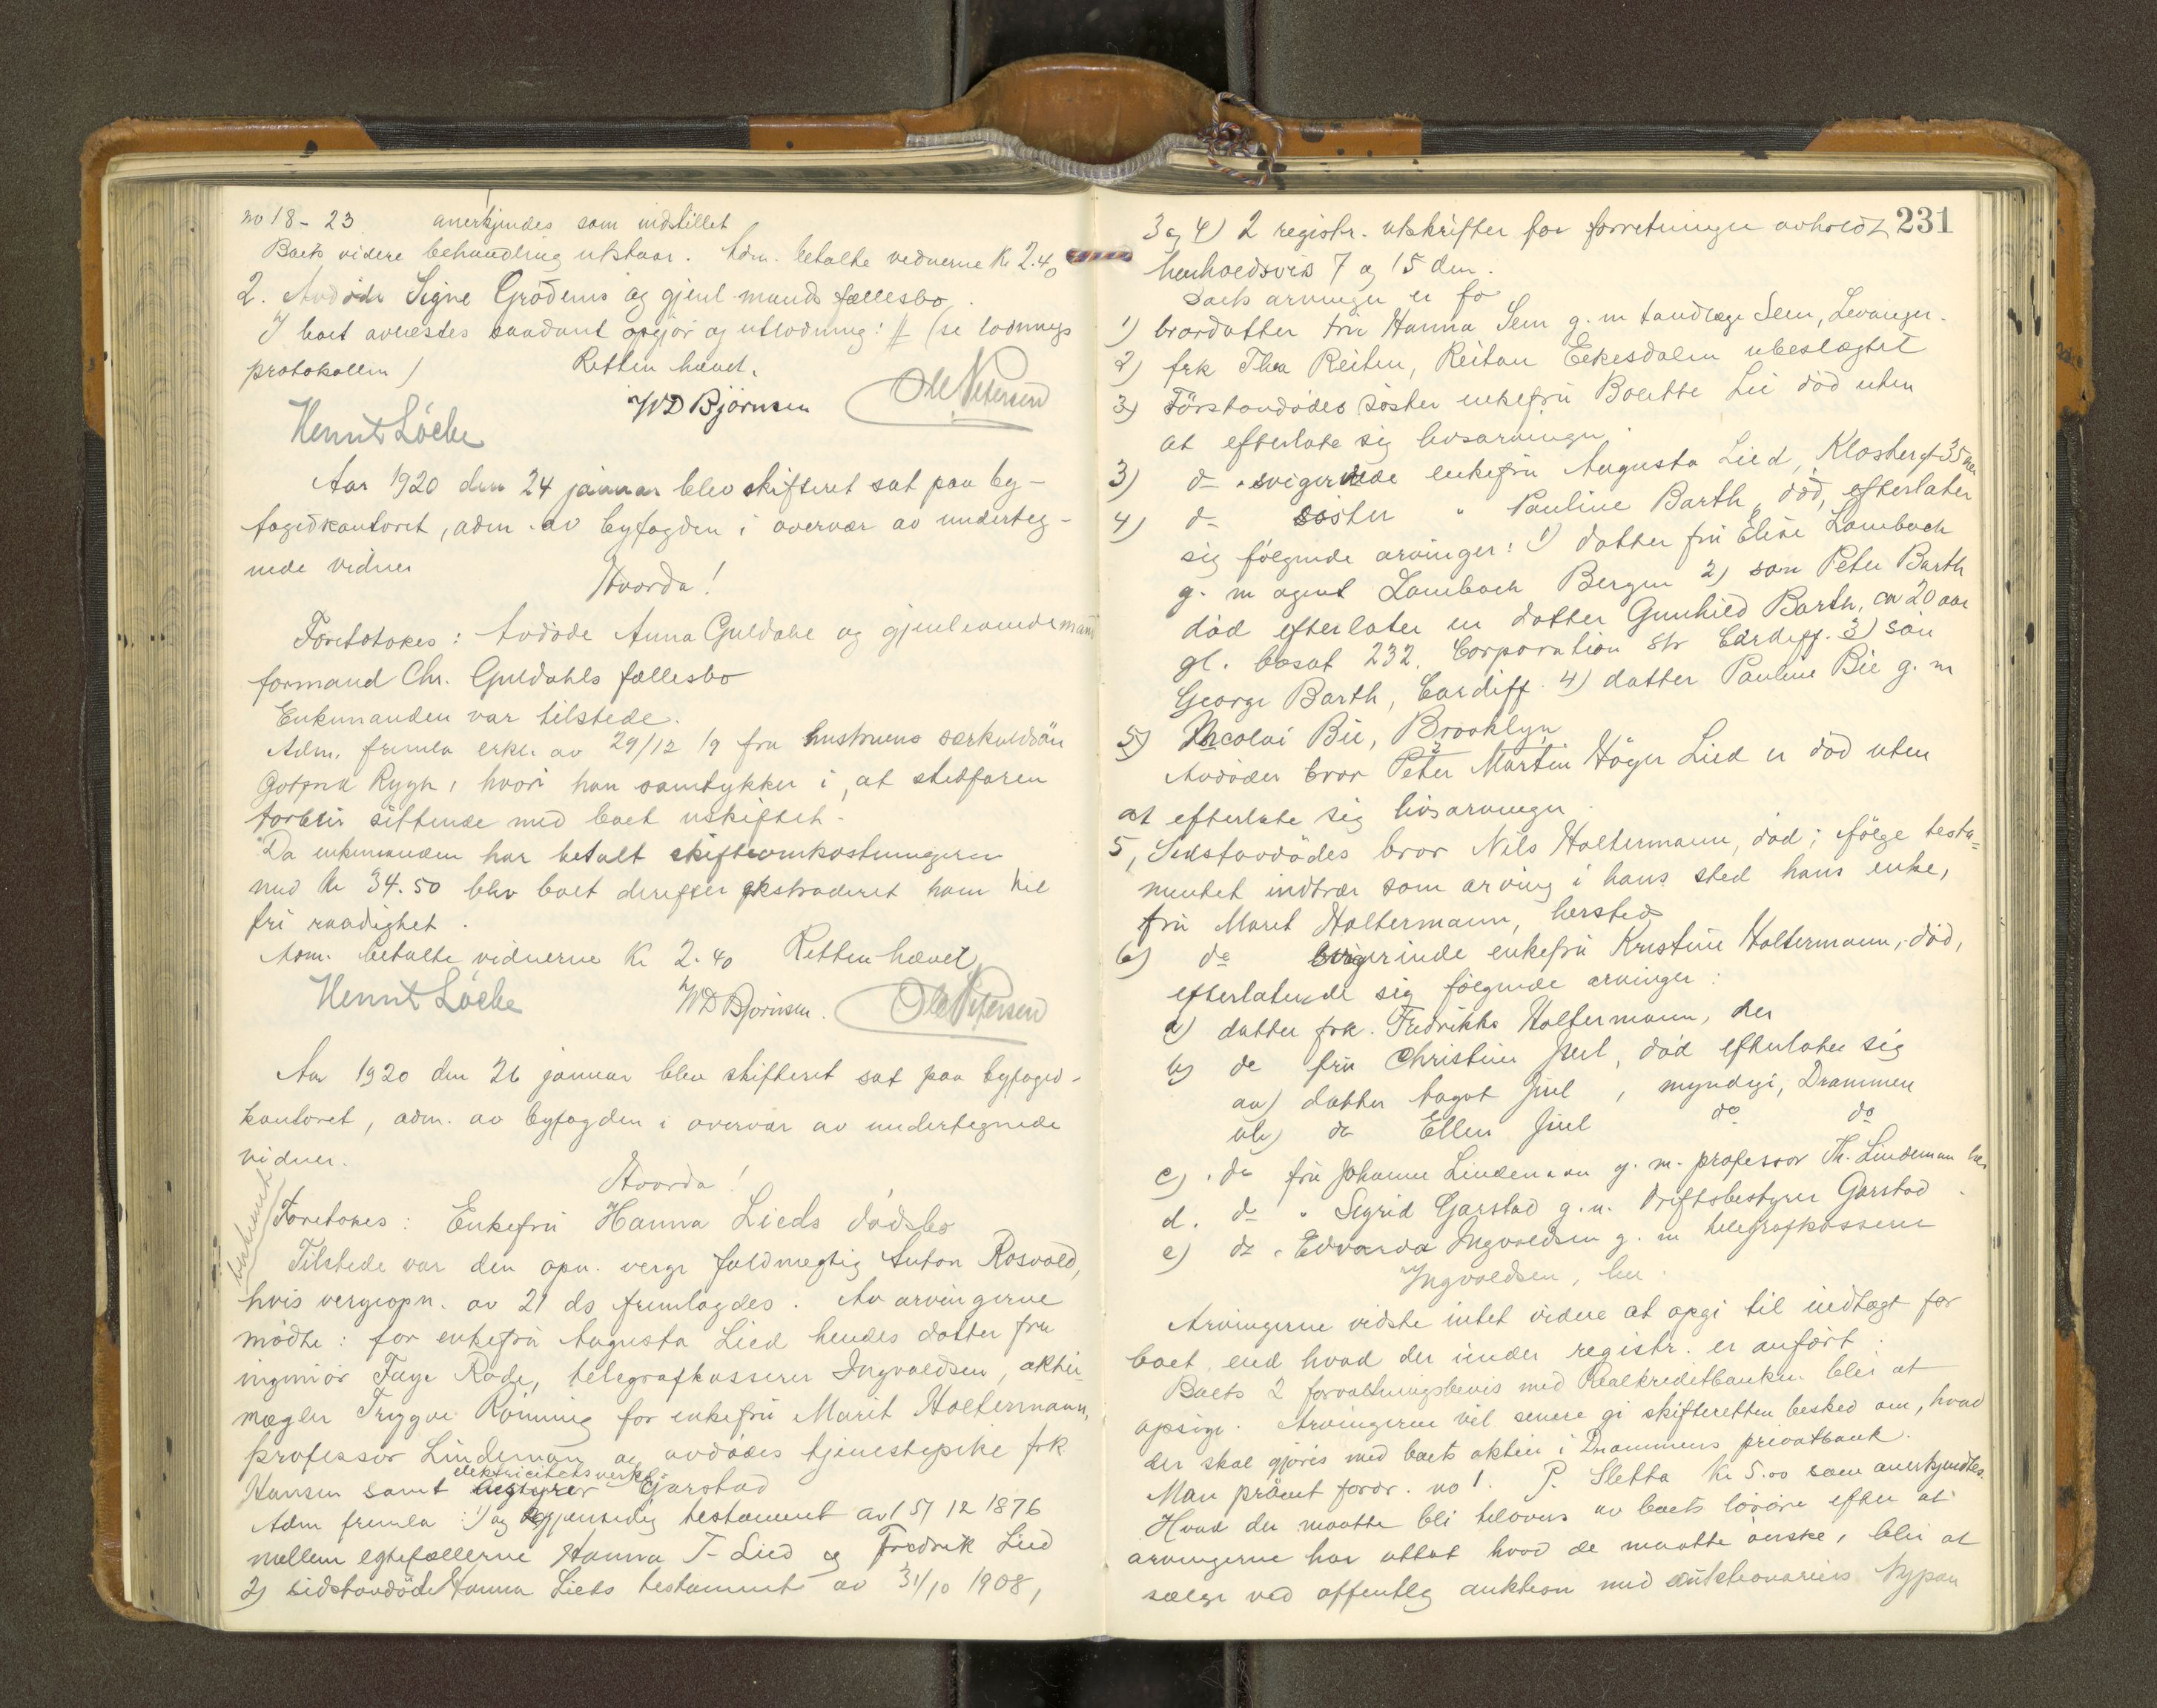 no 18 - 23 anerkjendes som indstillet
Boets videre behandling utstaar. Adm. betalte vidnerne Kr 2.40
2. Avdöde Signe Grödems og gjenl. mands fællesbo.
I boet avlæstes saadant opgjör og utlodning: # (se lodnings
protokollen) Retten hævet.
WD Björnsen Ole Petersen
Hennt Löche
Aar 1920 den 24 januar blev skifteret sat paa by-
fogedkontoret, adm. av byfogden i overvær av underteg-
nede vidner
Hvorda!
Foretokes: Avdöde Anna Guldahl og gjenlevende mand
formand Chr. Guldahls fællesbo
Enkemanden var tilstede.
Adm. fremla erkl. av 29/12 19 fra hustruens særkuldsön
Gotfred Rygh, hvori han samtykker i, at stedfaren
forblir sittende med boet uskiftet.
Da enkemanden har betalt skifteomkostningerne
med Kr 34.50 blev boet derefter ekstraderet ham til
fri raadighet.
Adm. betalte vidnerne Kr 2.40 Retten hævet
Hennt Löche WD Björnsen. Ole Petersen
Aar 1920 den 26 januar blev skifteret sat paa byfoged-
kontoret, adm. av byfogden i overvær av undertegnede
vidner.
Hvorda!
Foretokes: Enkefru Hanna Lieds dödsbo
Tilstede var den opn. verge fuldmegtig Anton Rosvold,
hvis vergeopn. av 21 ds fremlagdes. Av arvingerne
mödte: for enkefru Augusta Lied hendes datter fru
ingeniör Faye Rode, telegrafkasserer Ingvaldsen, aktie-
mægler Trygve Rönning for enkefru Marit Holtermann,
professor Lindeman og avdödes tjenestepike frk
elektricitetsverks
Hansen samt bestyrer Garstad
Adm fremla: 1) og gjensidig testament av 15/12 1876
mellem egtefællerne Hanna T. Lied og Fredrik Lied
2) sidstavdöde Hanna Lieds testament av 31/10 1908,
231
3 og 4) 2 registr. utskrifter for forretninger avholdt
henholdsvis 7 og 15 den.
Boets arvinger er fö
1) brordatter fru Hanna Sem g. m tandlæge Sem, Levanger.
2) frk Thea Reiten, Reitan Eekesdalen ubeslægtet
3) Förstavdödes söster enkefru Boletta Lie död uten
at efterlate sig livsarvinger.
3) do svigerinde enkefru Augusta Lied, Klostergt 35 her
4) do söster " Pauline Barth, död, efterlater
sig fölgende arvinger: 1) datter fru Elise Lambach
g. m agent Lambach Bergen 2) sön Peter Barth
död efterlater en datter Gunhild Barth, ca 20 aar
gl. bosat 232. Corporation Str Cardiff. 3) sön
George Barth, Cardiff. 4) datter Pauline Bie g. m
Nicolai Bie, Brooklyn
5) Avdödes bror Peter Martin Höyer Lied er död uten
at efterlate sig livsarvinger.
5, Sidstavdödes bror Nils Holtermann, död; ifölge testa-
mentet indtrær som arving i hans sted hans enke,
fru Marit Holtermann, hersteds
6) do svigerinde enkefru Kristine Holtermann, död,
efterlatende sig fölgende arvinger:
a) datter frk. Fredrikke Holtermann, her
b) do fru Christine Juel, död efterlater sig
aa) datter Aagot Juel, myndig, Drammen
bb) do Ellen Juel do do
c) do fru Johanne Lindeman g. m. professor Th. Lindeman her
d. do " Sigrid Garstad g. m. driftsbestyrer Garstad.
e) do " Edvarda Ingvaldsen g. m telegrafkasserer
Ingvaldsen, her.
Arvingerne vidste intet videre at opgi til indtægt for
boet end hvad der under registr. er anfört.
Boets 2 forvaltningsbevis med Realkreditbanken blir at
opsige. Arvingerne vil senere gi skifteretten besked om, hvad
der skal gjöres med boets aktier i Drammens privatbank.
Man prövet fordr. no 1. P. Sletta Kr 5.00 som anerkjendtes.
Hvad der maatte bli tilovers av boets lösöre efter at
arvingerne har uttat hvad de maatte önske, blir at
sælge ved offentlig auktion med auktionarius Nypan